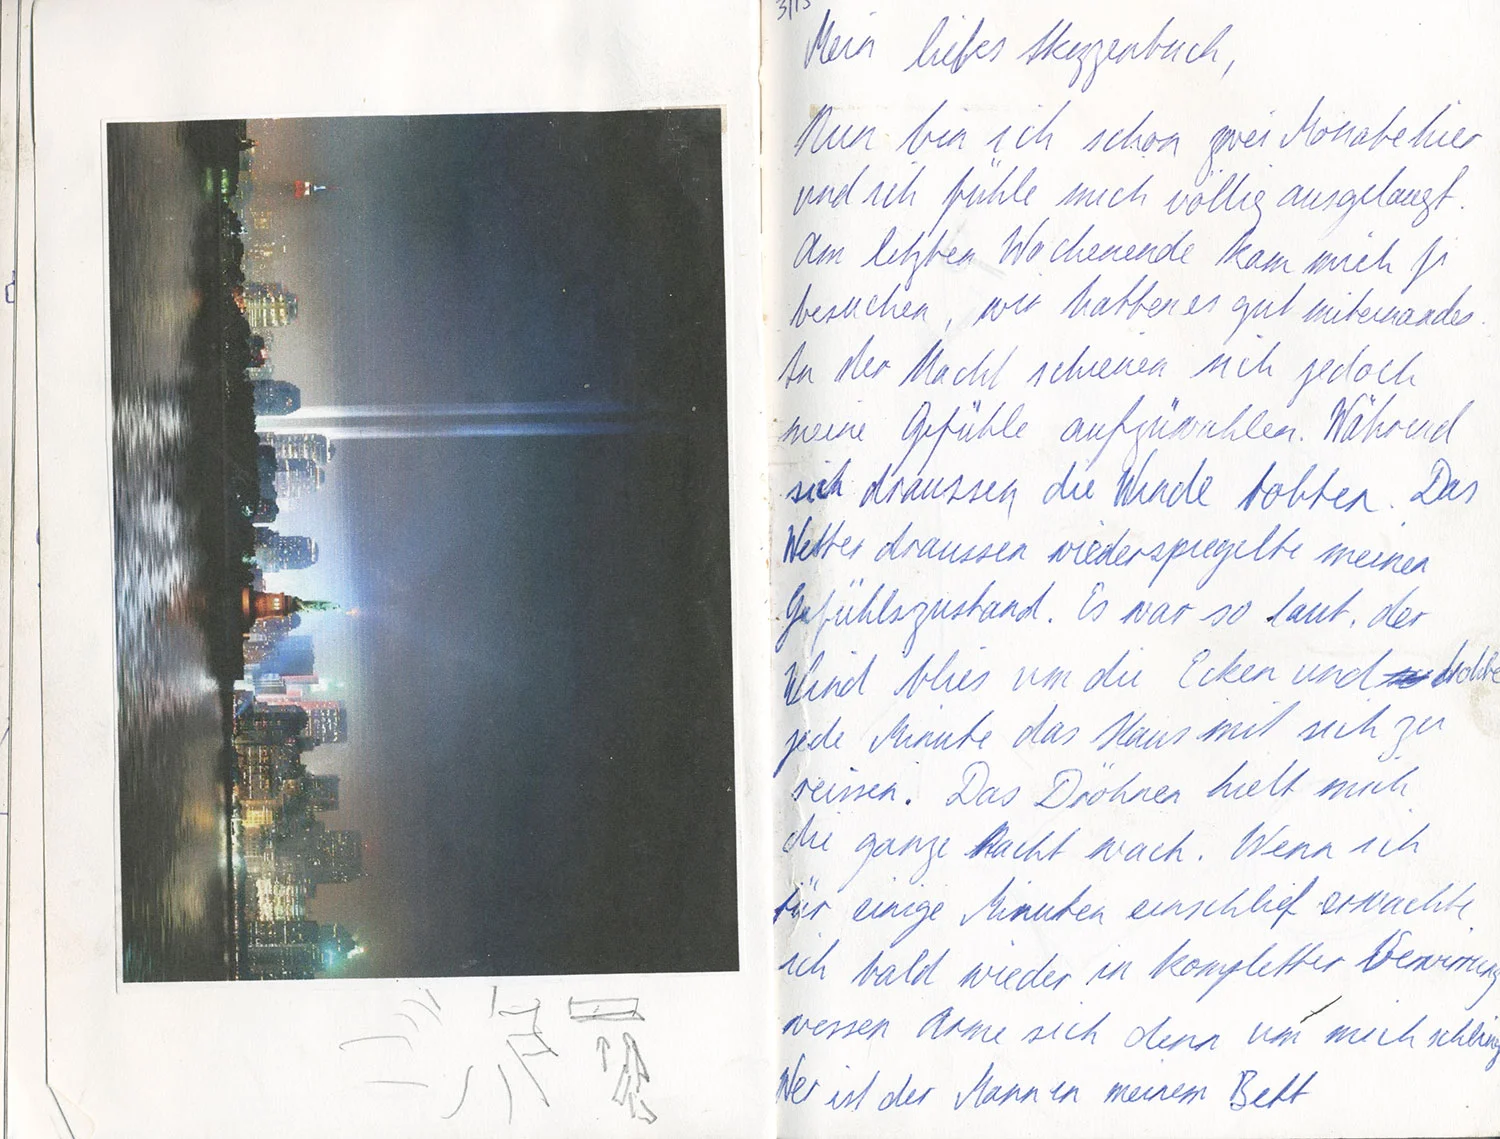 3/13
Mein liebes Skizzenbuch,
Nun bin ich schon zwei Monate hier
und ich fühle mich völlig ausgelaugt.
Am letzten Wochenende kam mich
besuchen, wir hatten es gut miteinander.
In der Nacht schienen sich jedoch
meine Gefühle aufzuwühlen. Während
sich draussen die Winde tobten. Das
Wetter draussen wiederspiegelte meinen
Gefühlszustand. Es war so laut, der
Wind blies um die Ecken und drohte
jede Minute das Haus mit sich zu
reissen. Das Dröhnen hielt mich
die ganze Nacht wach. Wenn ich
für einige Minuten einschlief erwachte
ich bald wieder in kompletter Verwirrung
wessen Arme sich denn um mich schling
Wer ist der Mann in meinem Bett